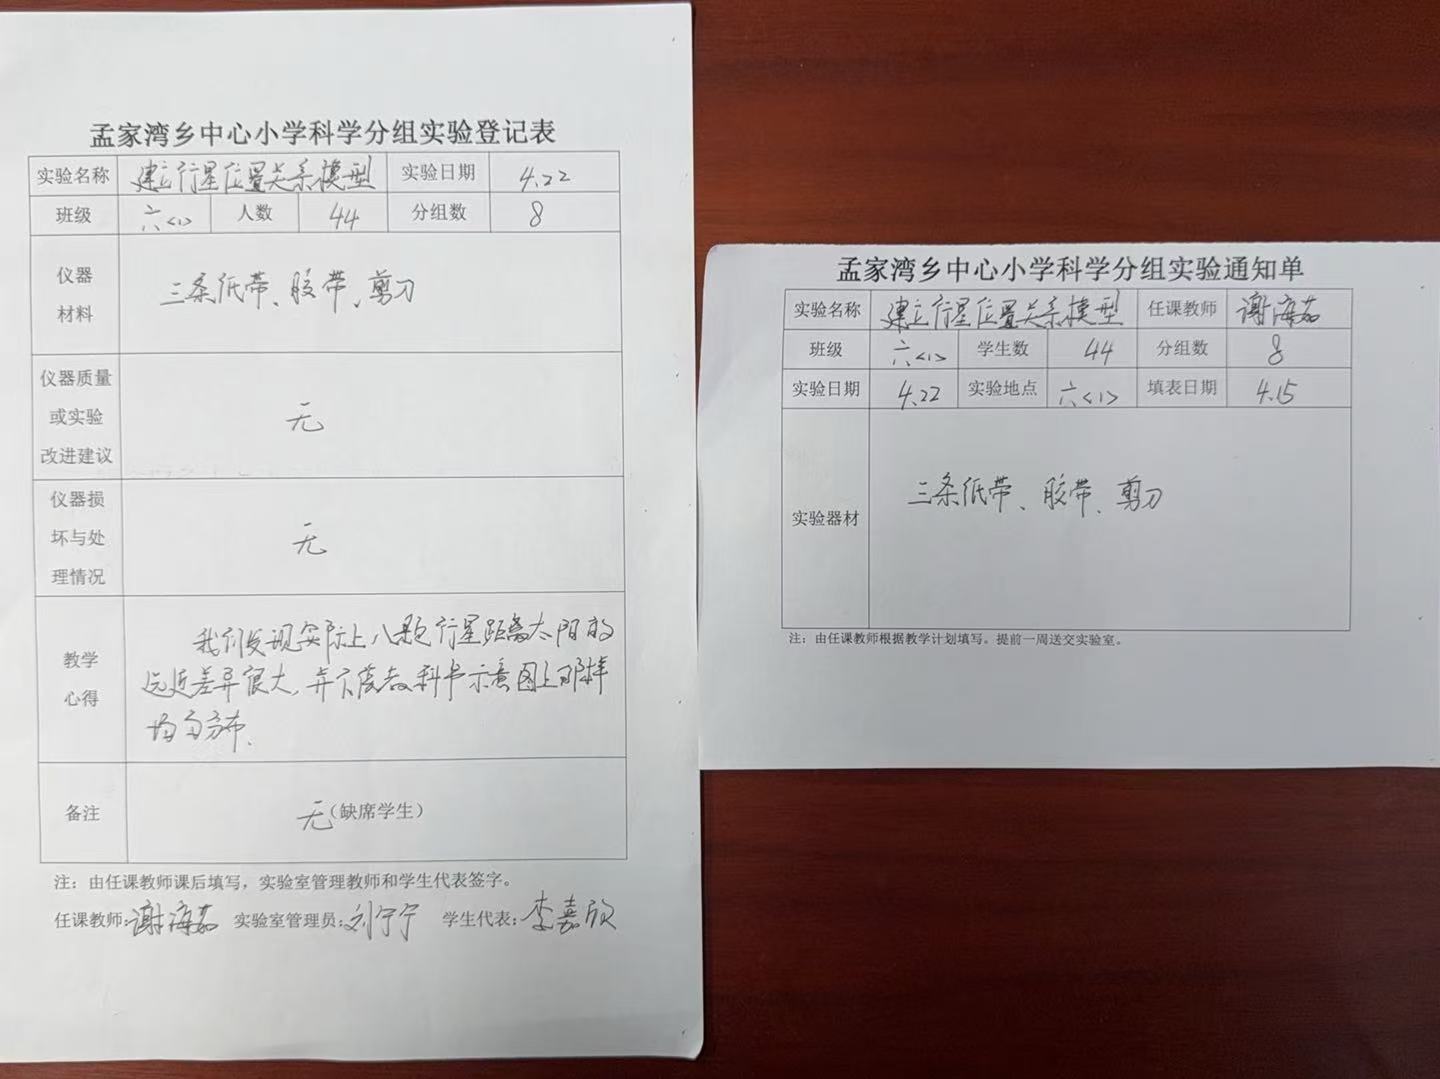 孟家湾乡中心小学科学分组实验登记表
实验名称 建立行星位置关系模型 实验日期 4.22
班级 六<1> 人数 44 分组数 8
仪器
材料
三条纸带、胶带、剪刀
仪器质量
或实验
改进建议
无
仪器损
坏与处
理情况
无
教学
心得
我们发现实际上八颗行星距离太阳的
远近差异很大,并不像教科书示意图上那样
均匀分布.
备注 无(缺席学生)
注:由任课教师课后填写,实验室管理教师和学生代表签字。
任课教师:谢海茹 实验室管理员:刘宁宁 学生代表:李嘉欣
孟家湾乡中心小学科学分组实验通知单
实验名称 建立行星位置关系模型 任课教师 谢海茹
班级 六<1> 学生数 44 分组数 8
实验日期 4.22 实验地点 六<1> 填表日期 4.15
实验器材 三条纸带、胶带、剪刀
注:由任课教师根据教学计划填写。提前一周送交实验室。